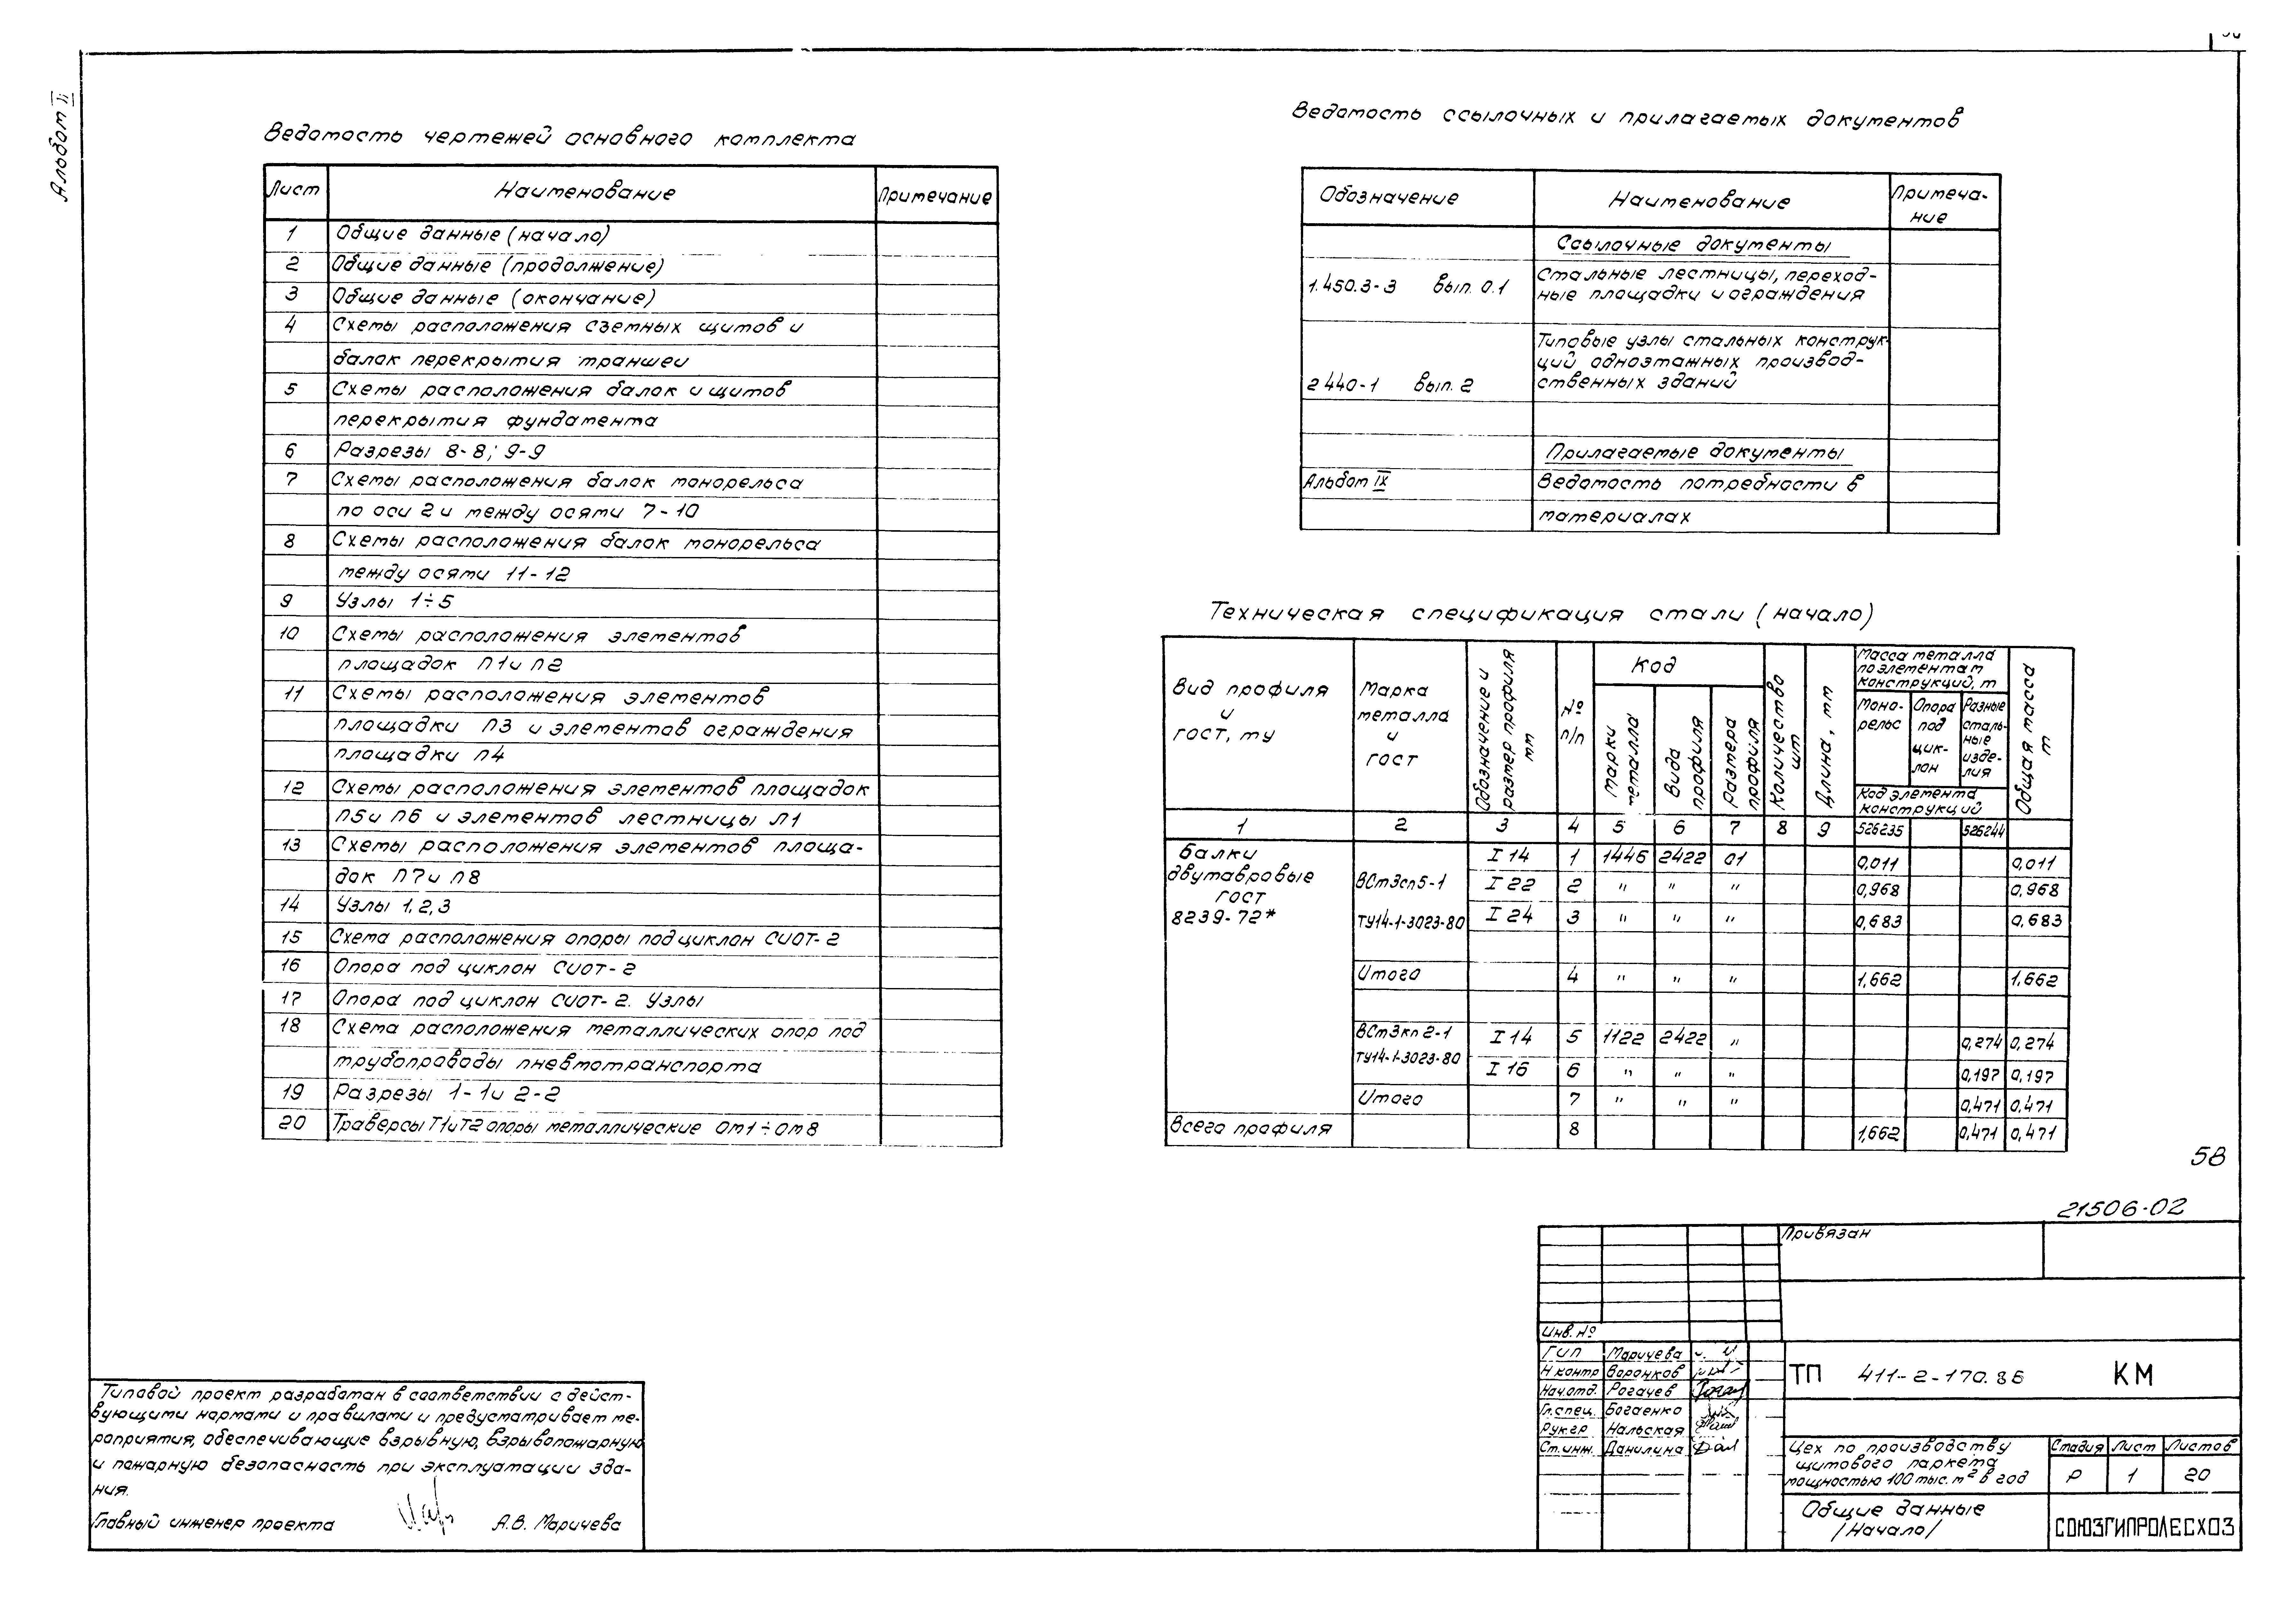 Альбом II
Ведомость чертежей основного комплекта
Лист Наименование Примечание
1 Общие данные (начало)
2 Общие данные (продолжение)
3 Общие данные (окончание)
4 Схемы расположения съемных щитов и
балок перекрытия траншеи
5 Схемы расположения балок и щитов
перекрытия фундамента
6 Разрезы 8-8; 9-9
7 Схемы расположения балок монорельса
по оси 2 и между осями 7-10
8 Схемы расположения балок монорельса
между осями 11-12
9 Узлы 1÷5
10 Схемы расположения элементов
площадок П1 и П2
11 Схемы расположения элементов
площадки П3 и элементов ограждения
площадки П4
12 Схемы расположения элементов площадок
П5 и П6 и элементов лестницы Л1
13 Схемы расположения элементов площа-
док П7 и П8
14 Узлы 1,2,3
15 Схема расположения опоры под циклон СИОТ-2
16 Опора под циклон СИОТ-2
17 Опора под циклон СИОТ-2. Узлы
18 Схема расположения металлических опор под
трубопроводы пневмотранспорта
19 Разрезы 1-1 и 2-2
20 Траверсы Т1 и Т2 опоры металлические Ом1÷Ом8
Ведомость ссылочных и прилагаемых документов
Обозначение Наименование Примеча-
ние
Ссылочные документы
1.450.3-3 Вып. 0.1 Стальные лестницы, переход-
ные площадки и ограждения
Типовые узлы стальных конструк-
ций одноэтажных производ-
2440-1 Вып. 2 ственных зданий
Прилагаемые документы
Альбом IX Ведомость потребности в
материалах
Техническая спецификация стали (начало)
Вид профиля
и
ГОСТ, ТУ
Марка
металла
и
ГОСТ
Обозначение и
размер профиля
мм
№
п/п
Код
Марки
металла
Вида
профиля
Размера
профиля
Количество
шт
Длина, мм
Масса металла
по элементам
конструкций, т
Моно-
рельс
Опора
под
цик-
лон
Разные
сталь-
ные
изде-
лия
Код элемента
конструкций
Общая масса
т
1 2 3 4 5 6 7 8 9 526235 526244
Балки
двутавровые
ГОСТ
8239-72*
ВСт3сп5-1
ТУ14-1-3023-80
I 14 1 1446 2422 01 0,011 0,011
I 22 2 " " " 0,968 0,968
I 24 3 " " " 0,683 0,683
Итого 4 " " " 1,662 1,662
ВСт3кп2-1
ТУ14-1-3023-80
I 14 5 1122 2422 " 0,274 0,274
I 16 6 " " " 0,197 0,197
Итого 7 " " " 0,471 0,471
Всего профиля 8 1,662 0,471 0,471
58
21506-02
Привязан
Инв. №
ГИП Маричева
Н.контр Воронков
Нач.отд. Рогачев
Гл.спец. Богаенко
Рук.гр Нальская
Ст.инж. Данилина
ТП 411-2-170.86 КМ
Цех по производству
щитового паркета
мощностью 100 тыс. м² в год
Стадия Лист Листов
Р 1 20
Общие данные
/Начало/
СОЮЗГИПРОЛЕСХОЗ
Типовой проект разработан в соответствии с дейст-
вующими нормами и правилами и предусматривает ме-
роприятия, обеспечивающие взрывную, взрывопожарную
и пожарную безопасность при эксплуатации зда-
ния.
Главный инженер проекта А.В. Маричева